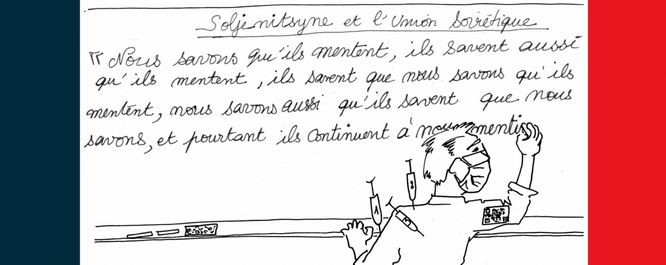 Soljenitsyne et l'Union Soviétique
« Nous savons qu'ils mentent, ils savent aussi
qu'ils mentent, ils savent que nous savons qu'ils
mentent, nous savons aussi qu'ils savent que nous
savons, et pourtant ils continuent à nous mentir
A
B